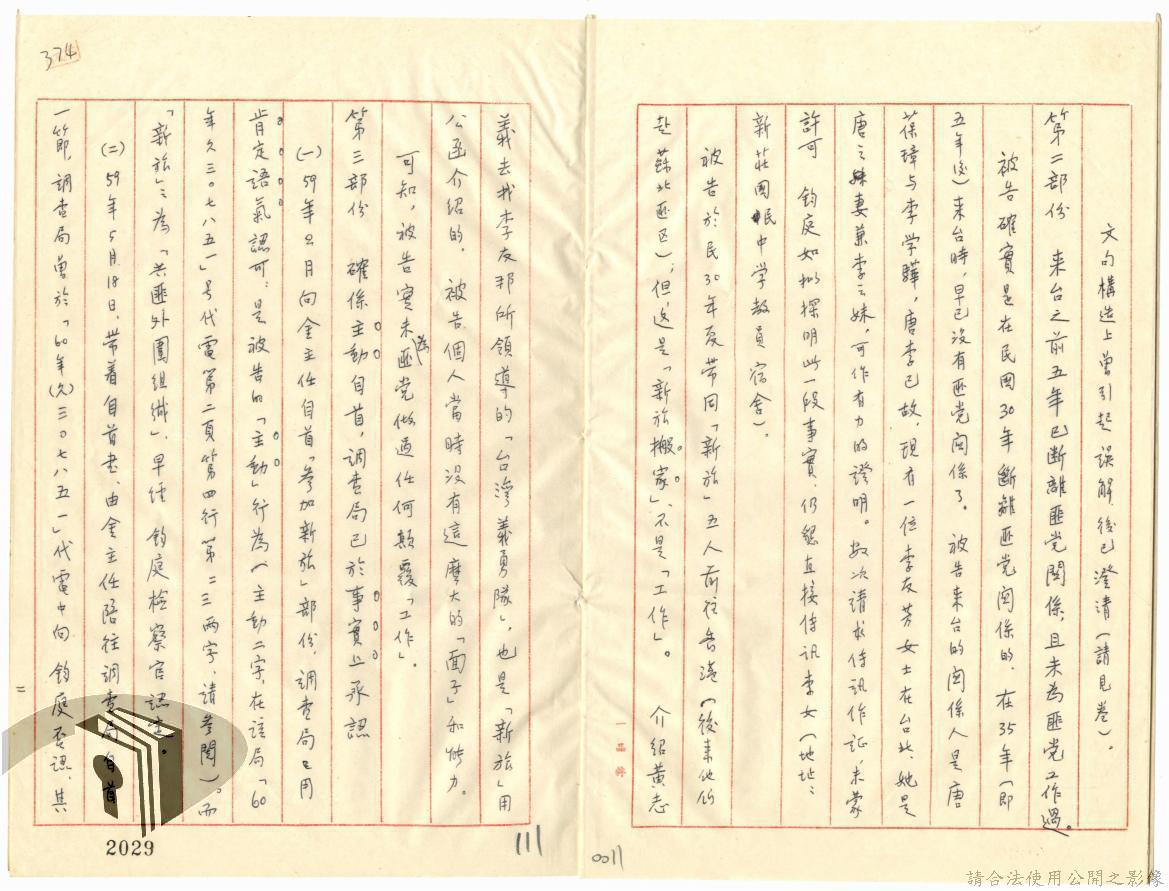 文句構造上曾引起誤解、後已澄清(請見卷)。
第二部份 來台之前五年已斷離匪党関係,且未為匪党工作過。
被告確實是在民國30年斷離匪党関係的、在35年(即
五年後)來台時,早已沒有匪党関係了。被告來台的関係人是唐
葆璋与李学驊,唐李已故,現有一位李友芳女士在台北、她是
唐之妻兼李之妹,可作有力的證明。数次請求傳訊作証,未蒙
許可 鈞庭如拟探明此一段事實、仍懇直接傳訊李女(地址:
新莊國民中学教員宿舍)。
被告於民30年夏带同「新旅」五人前往香港(後來他们
赴蘇北匪区);但這是「新旅搬家」、不是「工作」。 介紹黃志
義去找李友邦所領導的「台灣義勇隊」,也是「新旅」用
公函介绍的,被告個人當時沒有這麼大的「面子」和能力。
可知,被告實未為匪党做過任何顛覆「工作」。
第三部份 確係主動自首,調查局已於事實上承認
(一)59年2月向金主任自首「參加新旅」部份,調查局已用
肯定語氣認可:是被告的「主動」行為(主動二字,在該局「60
年久三〇七八五一」号代電第二頁第四行第二三两字,請參閱)。而
「新旅」之為「共匪外圍組織」,早經 鈞庭檢察官認定。
(二)59年5月18日、带着自首書、由金主任陪往調查局自首
一節,調查局曾於「60年(久)三〇七八五一」代電中向 鈞庭否認,其
二
374
一品齋
2029
111
0011
請合法使用公開之影像